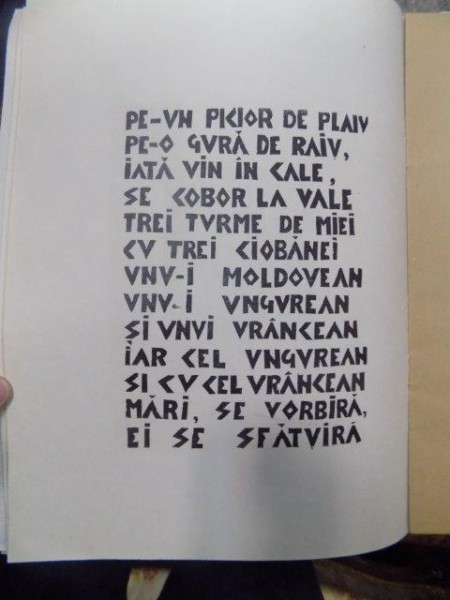 PE-UN PICIOR DE PLAIU
PE-O GURĂ DE RAIU,
IATĂ VIN ÎN CALE,
SE COBOR LA VALE
TREI TURME DE MIEI
CU TREI CIOBĂNEI
UNU-I MOLDOVEAN
UNU-I UNGUREAN
ȘI UNUI VRÂNCEAN
IAR CEL UNGUREAN
SI CU CEL VRÂNCEAN
MĂRI, SE VORBIRĂ,
EI SE SFĂTUIRĂ